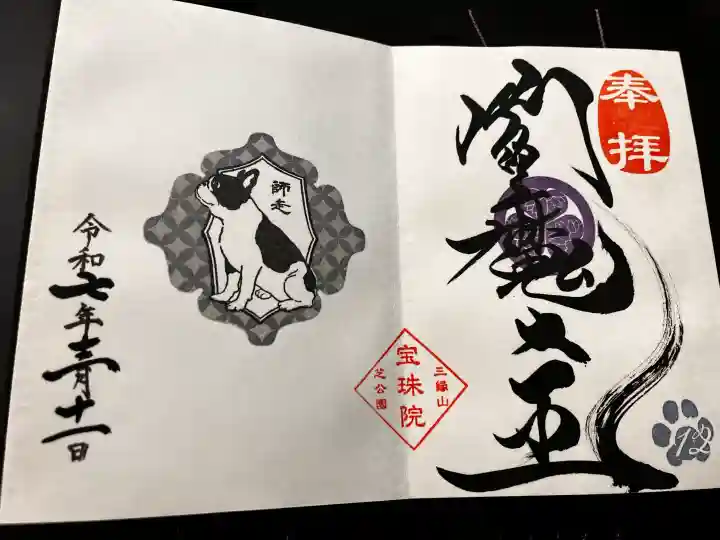 奉拝
閻魔大王
12
三縁山
宝珠院
芝公園
師走
令和七年十二月十一日